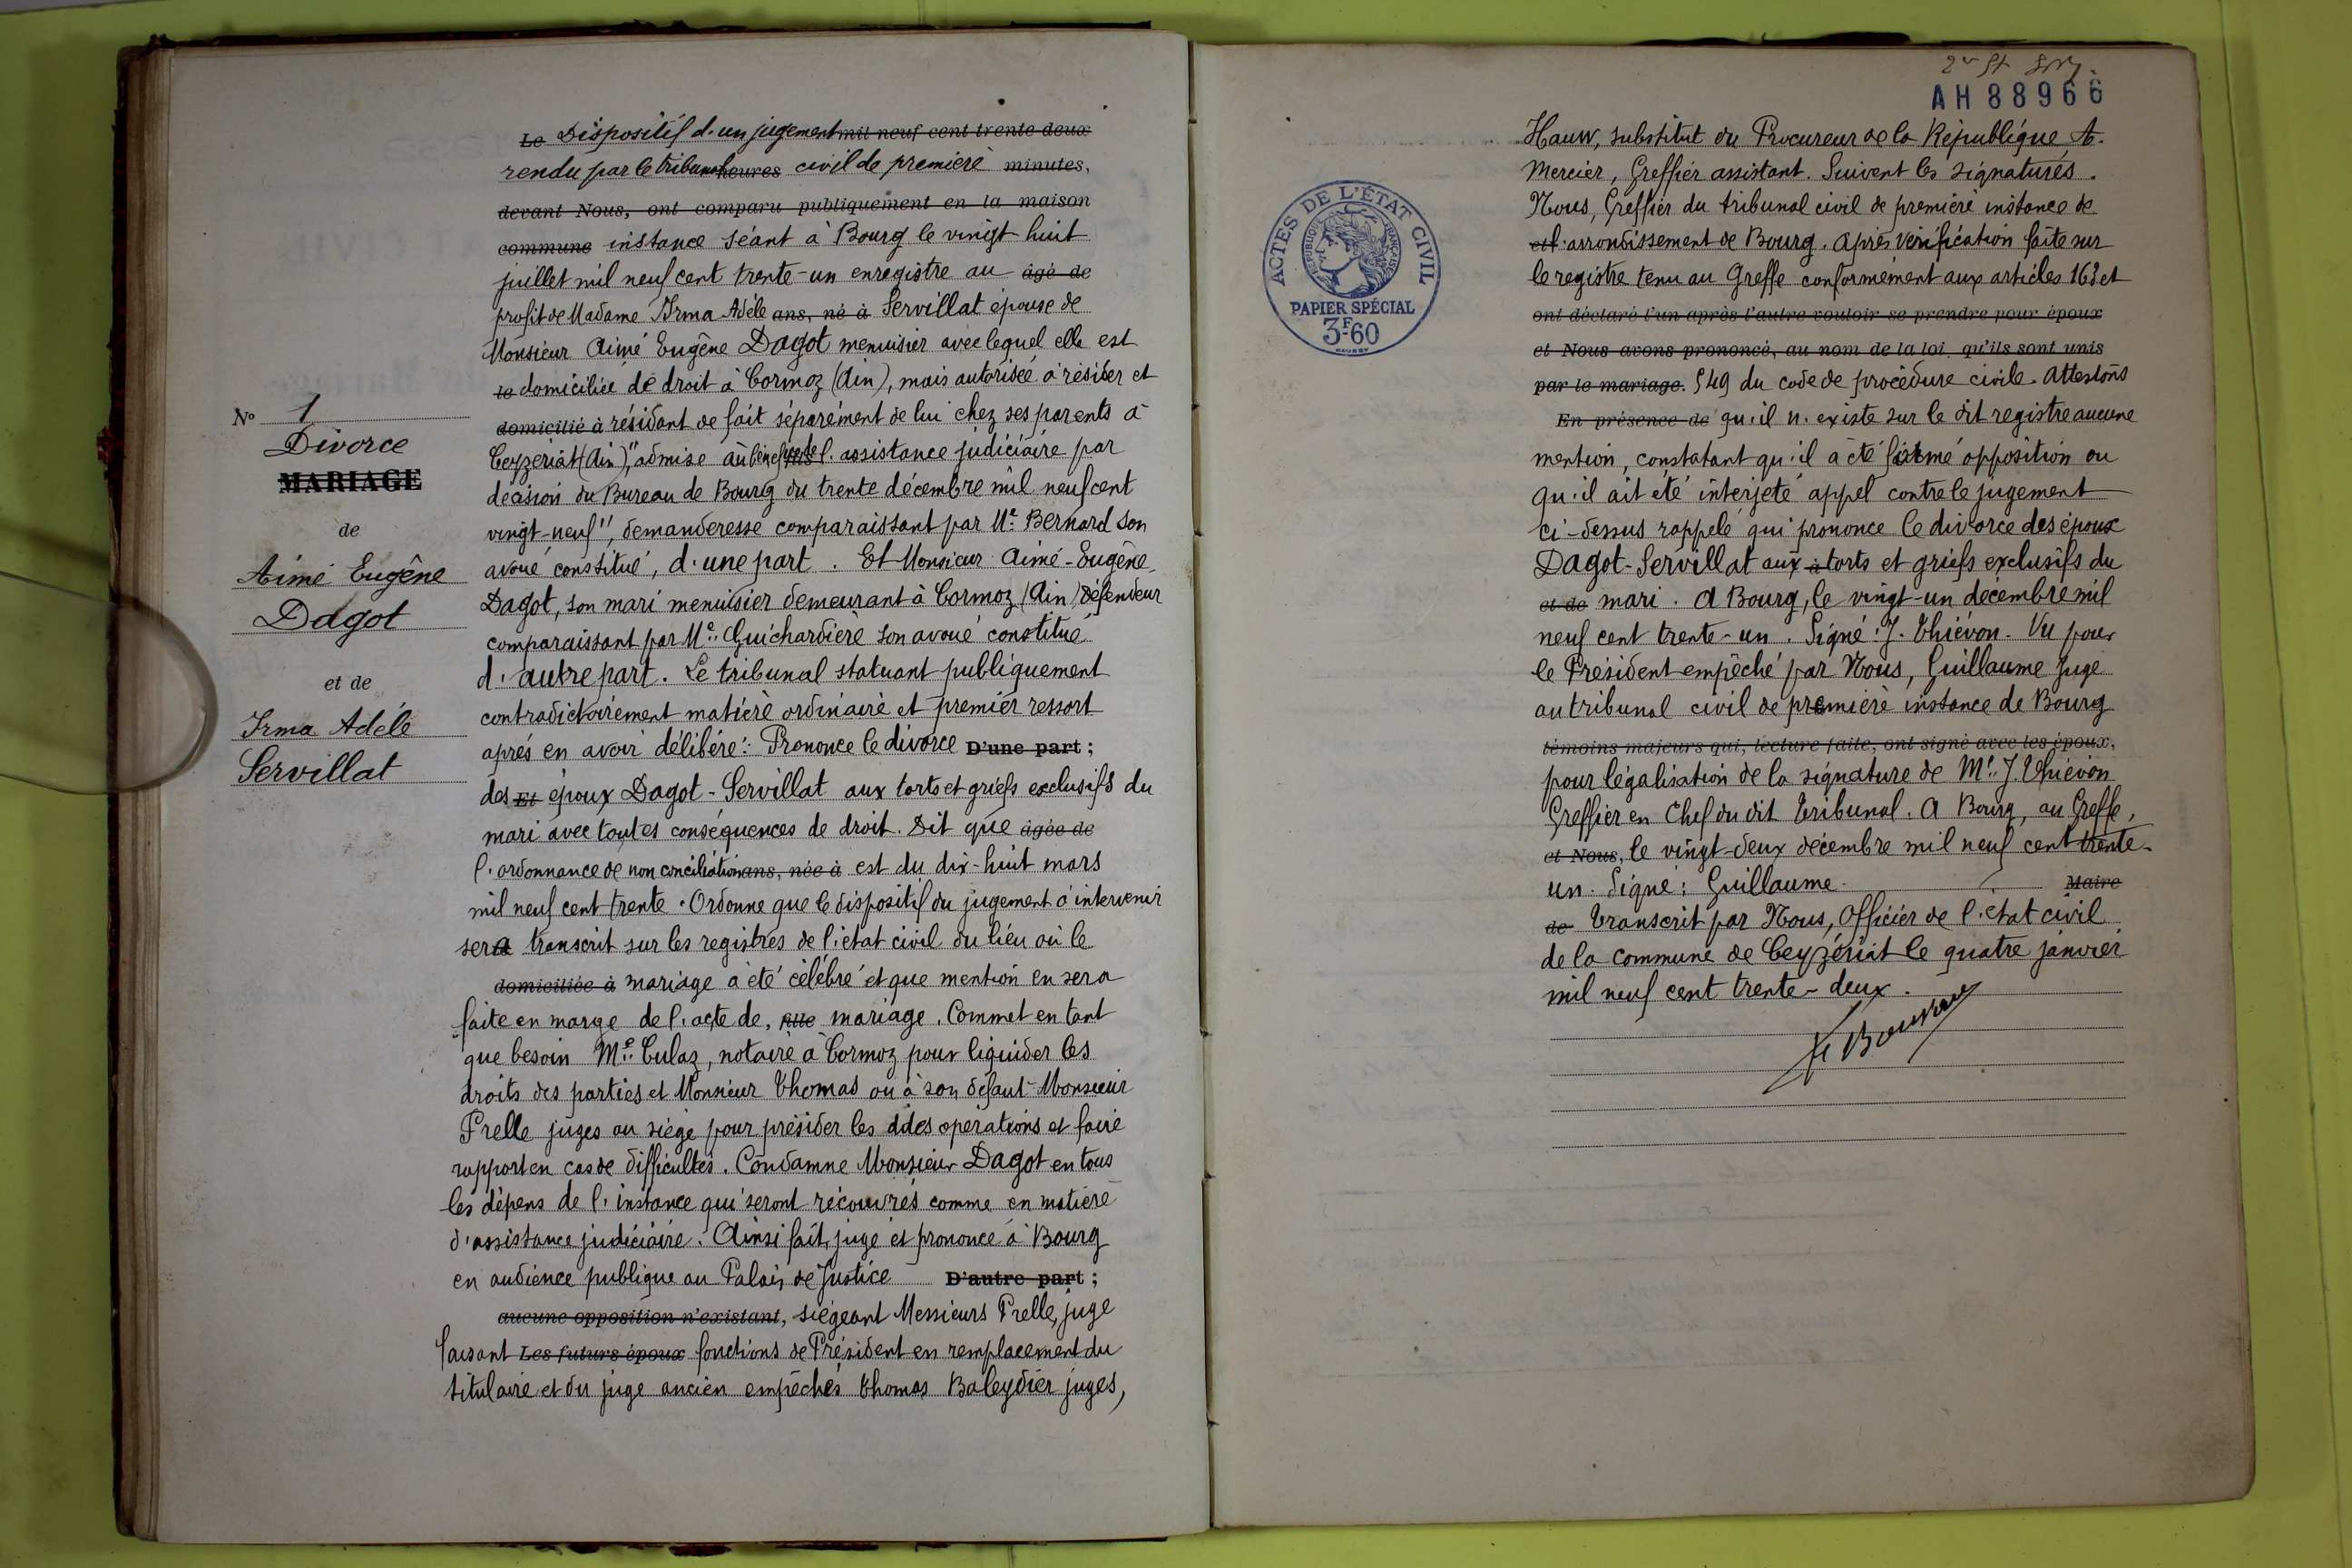 N° 1
Divorce
MARIAGE
de
Aimé Eugène
Dagot
et de
Irma Adèle
Servillat
Le Dispositif d'un jugement mil neuf cent trente deux
rendu par le tribunal heures civil de première minutes,
devant Nous, ont comparu publiquement en la maison
commune instance séant à Bourg le vingt-huit
juillet mil neuf cent trente-un enregistré au âgé de
profit de Madame Irma Adèle ans, né à Servillat épouse de
Monsieur Aimé Eugène Dagot menuisier avec lequel elle est
le domiciliée de droit à Cormoz (Ain), mais autorisée à résider et
domicilié à résidant de fait séparément de lui chez ses parents à
Ceyzériat (Ain), "admise au bénéfice de l'assistance judiciaire par
décision du Bureau de Bourg du trente décembre mil neuf cent
vingt-neuf", demanderesse comparaissant par Me Bernard son
avoué constitué, d'une part. Et Monsieur Aimé-Eugène
Dagot, son mari menuisier demeurant à Cormoz (Ain) défendeur
comparaissant par Me Guichardière son avoué constitué
d'autre part. Le tribunal statuant publiquement
contradictoirement matière ordinaire et premier ressort
après en avoir délibéré: Prononce le divorce D'une part;
des Et époux Dagot-Servillat aux torts et griefs exclusifs du
mari avec toutes conséquences de droit. Dit que âgée de
l'ordonnance de non conciliation ans, née à est du dix-huit mars
mil neuf cent trente. Ordonne que le dispositif du jugement à intervenir
sera transcrit sur les registres de l'état civil du lieu où le
domiciliée à mariage a été célébré et que mention en sera
faite en marge de l'acte de, fille mariage. Commet en tant
que besoin Me Culaz, notaire à Cormoz pour liquider les
droits des parties et Monsieur Thomas ou à son défaut Monsieur
Prelle juges au siège pour présider les dites opérations et faire
rapport en cas de difficultés. Condamne Monsieur Dagot en tous
les dépens de l'instance qui seront récouvrés comme en matière
d'assistance judiciaire. Ainsi fait, jugé et prononcé à Bourg
en audience publique au Palais de Justice D'autre part;
aucune opposition n'existant, siégeant Messieurs Prelle, juge
faisant Les futurs époux fonctions de Président en remplacement du
titulaire et du juge ancien empêchés Thomas Baleydier juges,
AH 88966
ACTES DE L'ÉTAT CIVIL
RÉPUBLIQUE FRANÇAISE
PAPIER SPÉCIAL
3F60
Hauw, substitut du Procureur de la République A.
Mercier, Greffier assistant. Suivent les signatures.
Nous, Greffier du tribunal civil de première instance de
et l'arrondissement de Bourg. Après vérification faite sur
le registre tenu au Greffe conformément aux articles 163 et
ont déclaré l'un après l'autre vouloir se prendre pour époux
et Nous avons prononcé, au nom de la loi, qu'ils sont unis
par le mariage. 549 du code de procédure civile. Attestons
En présence de qu'il n'existe sur le dit registre aucune
mention, constatant qu'il a été formé opposition ou
qu'il ait été interjeté appel contre le jugement
ci-dessus rappelé qui prononce le divorce des époux
Dagot-Servillat aux à torts et griefs exclusifs du
et de mari. A Bourg, le vingt-un décembre mil
neuf cent trente-un. Signé: J. Thiévon. Vu pour
le Président empêché par Nous, Guillaume Juge
au tribunal civil de première instance de Bourg
témoins majeurs qui, lecture faite, ont signé avec les époux,
pour légalisation de la signature de Me J. Thiévon
Greffier en Chef du dit tribunal. A Bourg, au Greffe,
et Nous, le vingt-deux décembre mil neuf cent trente-
un. Signé: Guillaume. Maire
de Transcrit par Nous, Officier de l'état civil
de la commune de Ceyzériat le quatre janvier
mil neuf cent trente-deux.